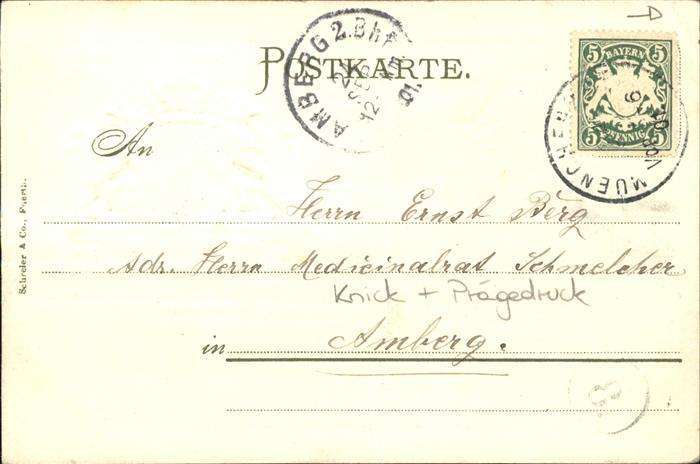 POSTKARTE.
AMBERG 2. Bhf.
24
SEP
12
01.
5 BAYERN 5
5 PFENNIG 5
MUENCHEN
An
Herrn Ernst Berg
Adr. Herrn Medicinalrat Schmelcher
Knick + Prägedruck
in Amberg.
Schreier & Co., Fuerth.